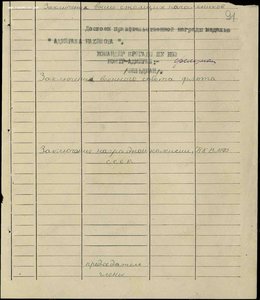 Заключение выше стоящих начальников
91
Достоин правительственной награды медалью
"АДМИРАЛ НАХИМОВ".
КОМАНДИР БРИГАДЫ
КОНТР-АДМИРАЛ:-
Заключение военного совета флота
Заключение наградной комиссии НКВМФ
СССР
председатель
члены